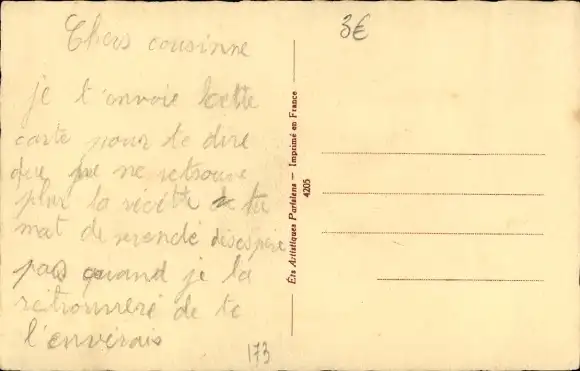 3€
Chers cousinne
je t'envoie cette
carte pour te dire
que je ne retrouve
plus la récette tu
mat de mendé désespère
pas quand je la
retrouveré de te
l'envérais
173
Éts Artistiques Parisiens — Imprimé en France
4205